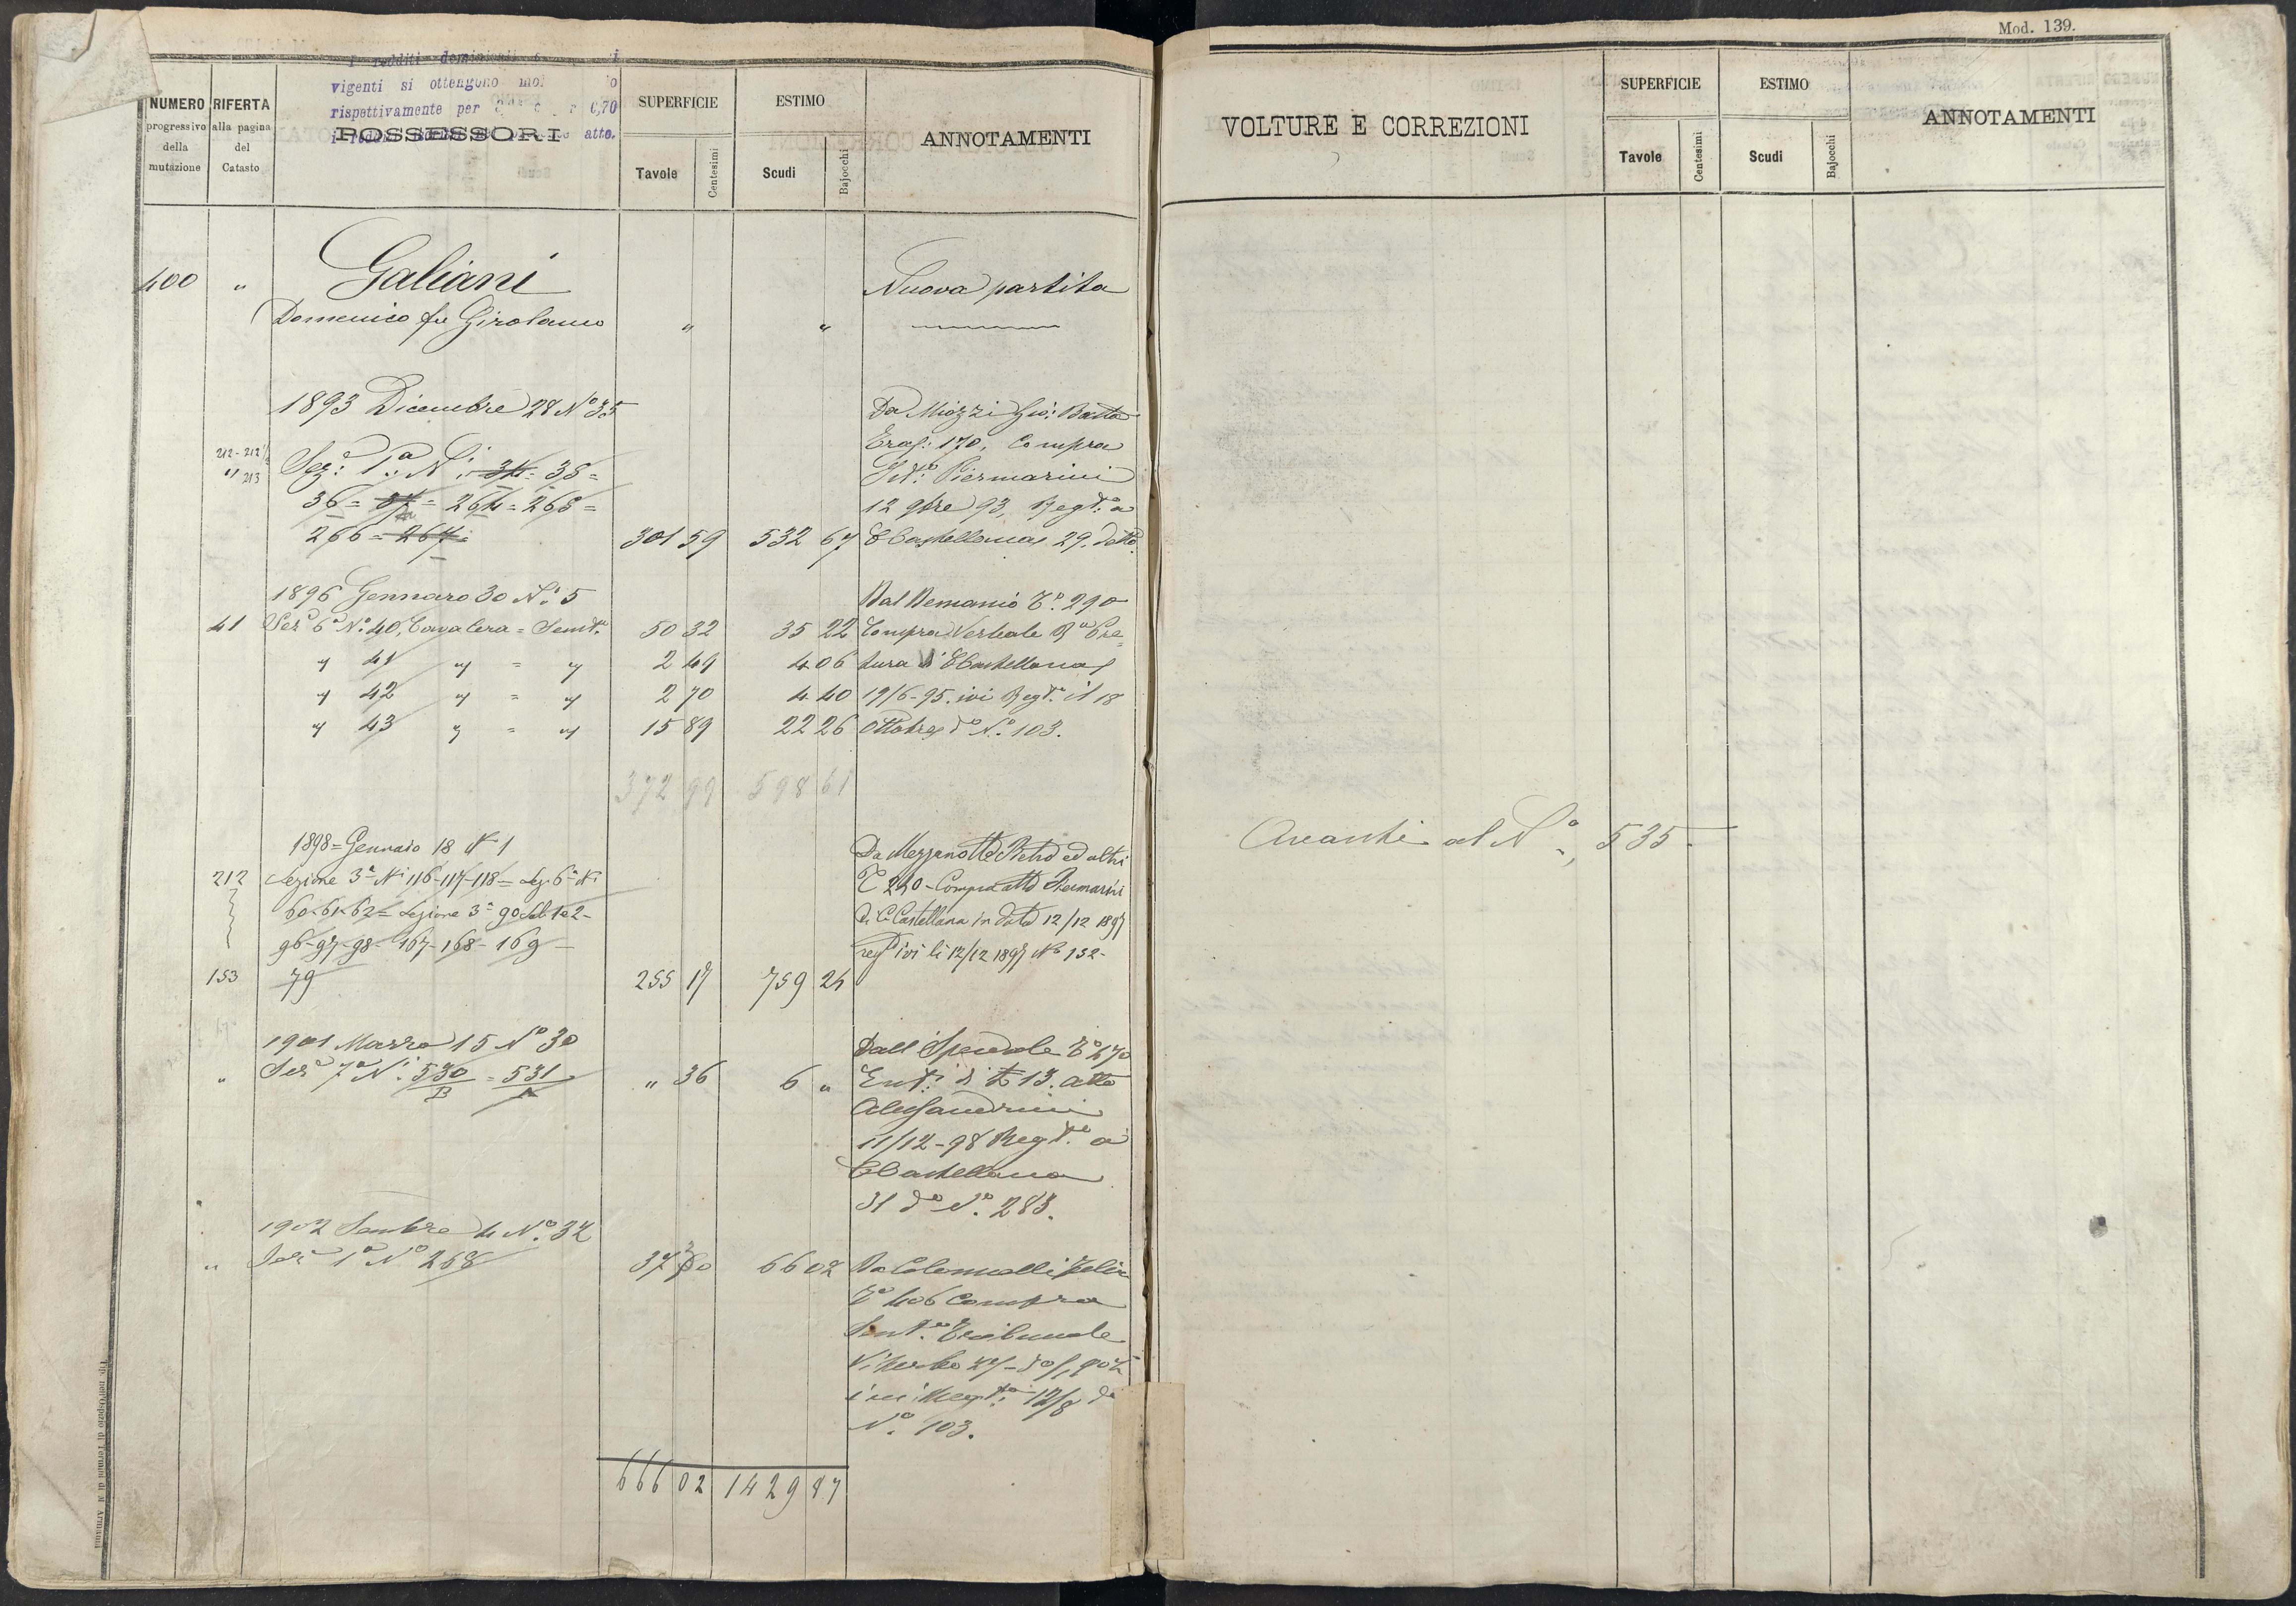 Mod. 139.
I redditi dominicali
vigenti si ottengono
rispettivamente per 0,70
atto.
NUMERO progressivo della mutazione
RIFERTA alla pagina del Catasto
POSSESSORI
SUPERFICIE
Tavole Centesimi
ESTIMO
Scudi Bajocchi
ANNOTAMENTI
400 " Galiani Nuova partita
Domenico fu Girolamo " "
1893 Dicembre 28 Nº 35 Da Miozzi Gio: Batta
212-212½ Sez: 1ª Ni 34 = 35 = 170, Compra
" 213 36 = 37 = 264 = 265 = Piermarini
266 = 267 = 301 59 532 67 12 9bre 93, Regto a
CCastellana 29. detto
1896 Gennaro 30 Nº 5 Dal Demanio Tº 290
41 Sezº 6ª Nº 40, Cavalera = Semt. 50 32 35 22 Compra Verbale Rª Pre=
" 41 " = " 2 49 4 06 tura di CCastellana
" 42 " = " 2 70 4 40 19/6-95. ivi Regto il 18
" 43 " = " 15 89 22 26 Ottobre dº Nº 103.
372 99 598 61
1898 = Gennaio 18 Nº 1 Da Mezzanotte Pietro ed altri
212 Sezione 3ª Ni 116-117-118 = Sez. 6ª Ni Tº 240 - Compra atto Piermarini
60-61-62 = Sezione 3ª 90 Sub 1e2- di C.Castellana in data 12/12 1897
96-97-98-167-168-169- regto ivi li 12/12 1897 Nº 132-
153 79 255 17 759 24
1901 Marzo 15 Nº 30 Dall'Spedale Tº 470
" Sezº 7ª Ni 530/B = 531/A " 36 6 " Enfi di £ 13. atto
Alessandrini
11/12-98 Regto a
CCastellana
31 dº Nº 283.
1902 4 Nº 32
" Sezº 1ª Nº 268 37 50 66 02 Da Colonnelli Felice
Tº 406 Compra
Sent. Tribunale
Viterbo
ivi Regto 12/8 dº
Nº 103.
666 02 1429 87
Tip. nell'Ospizio di Termini di N. Armanni
VOLTURE E CORREZIONI
SUPERFICIE
Tavole Centesimi
ESTIMO
Scudi Bajocchi
ANNOTAMENTI
Avanti al Nº 535